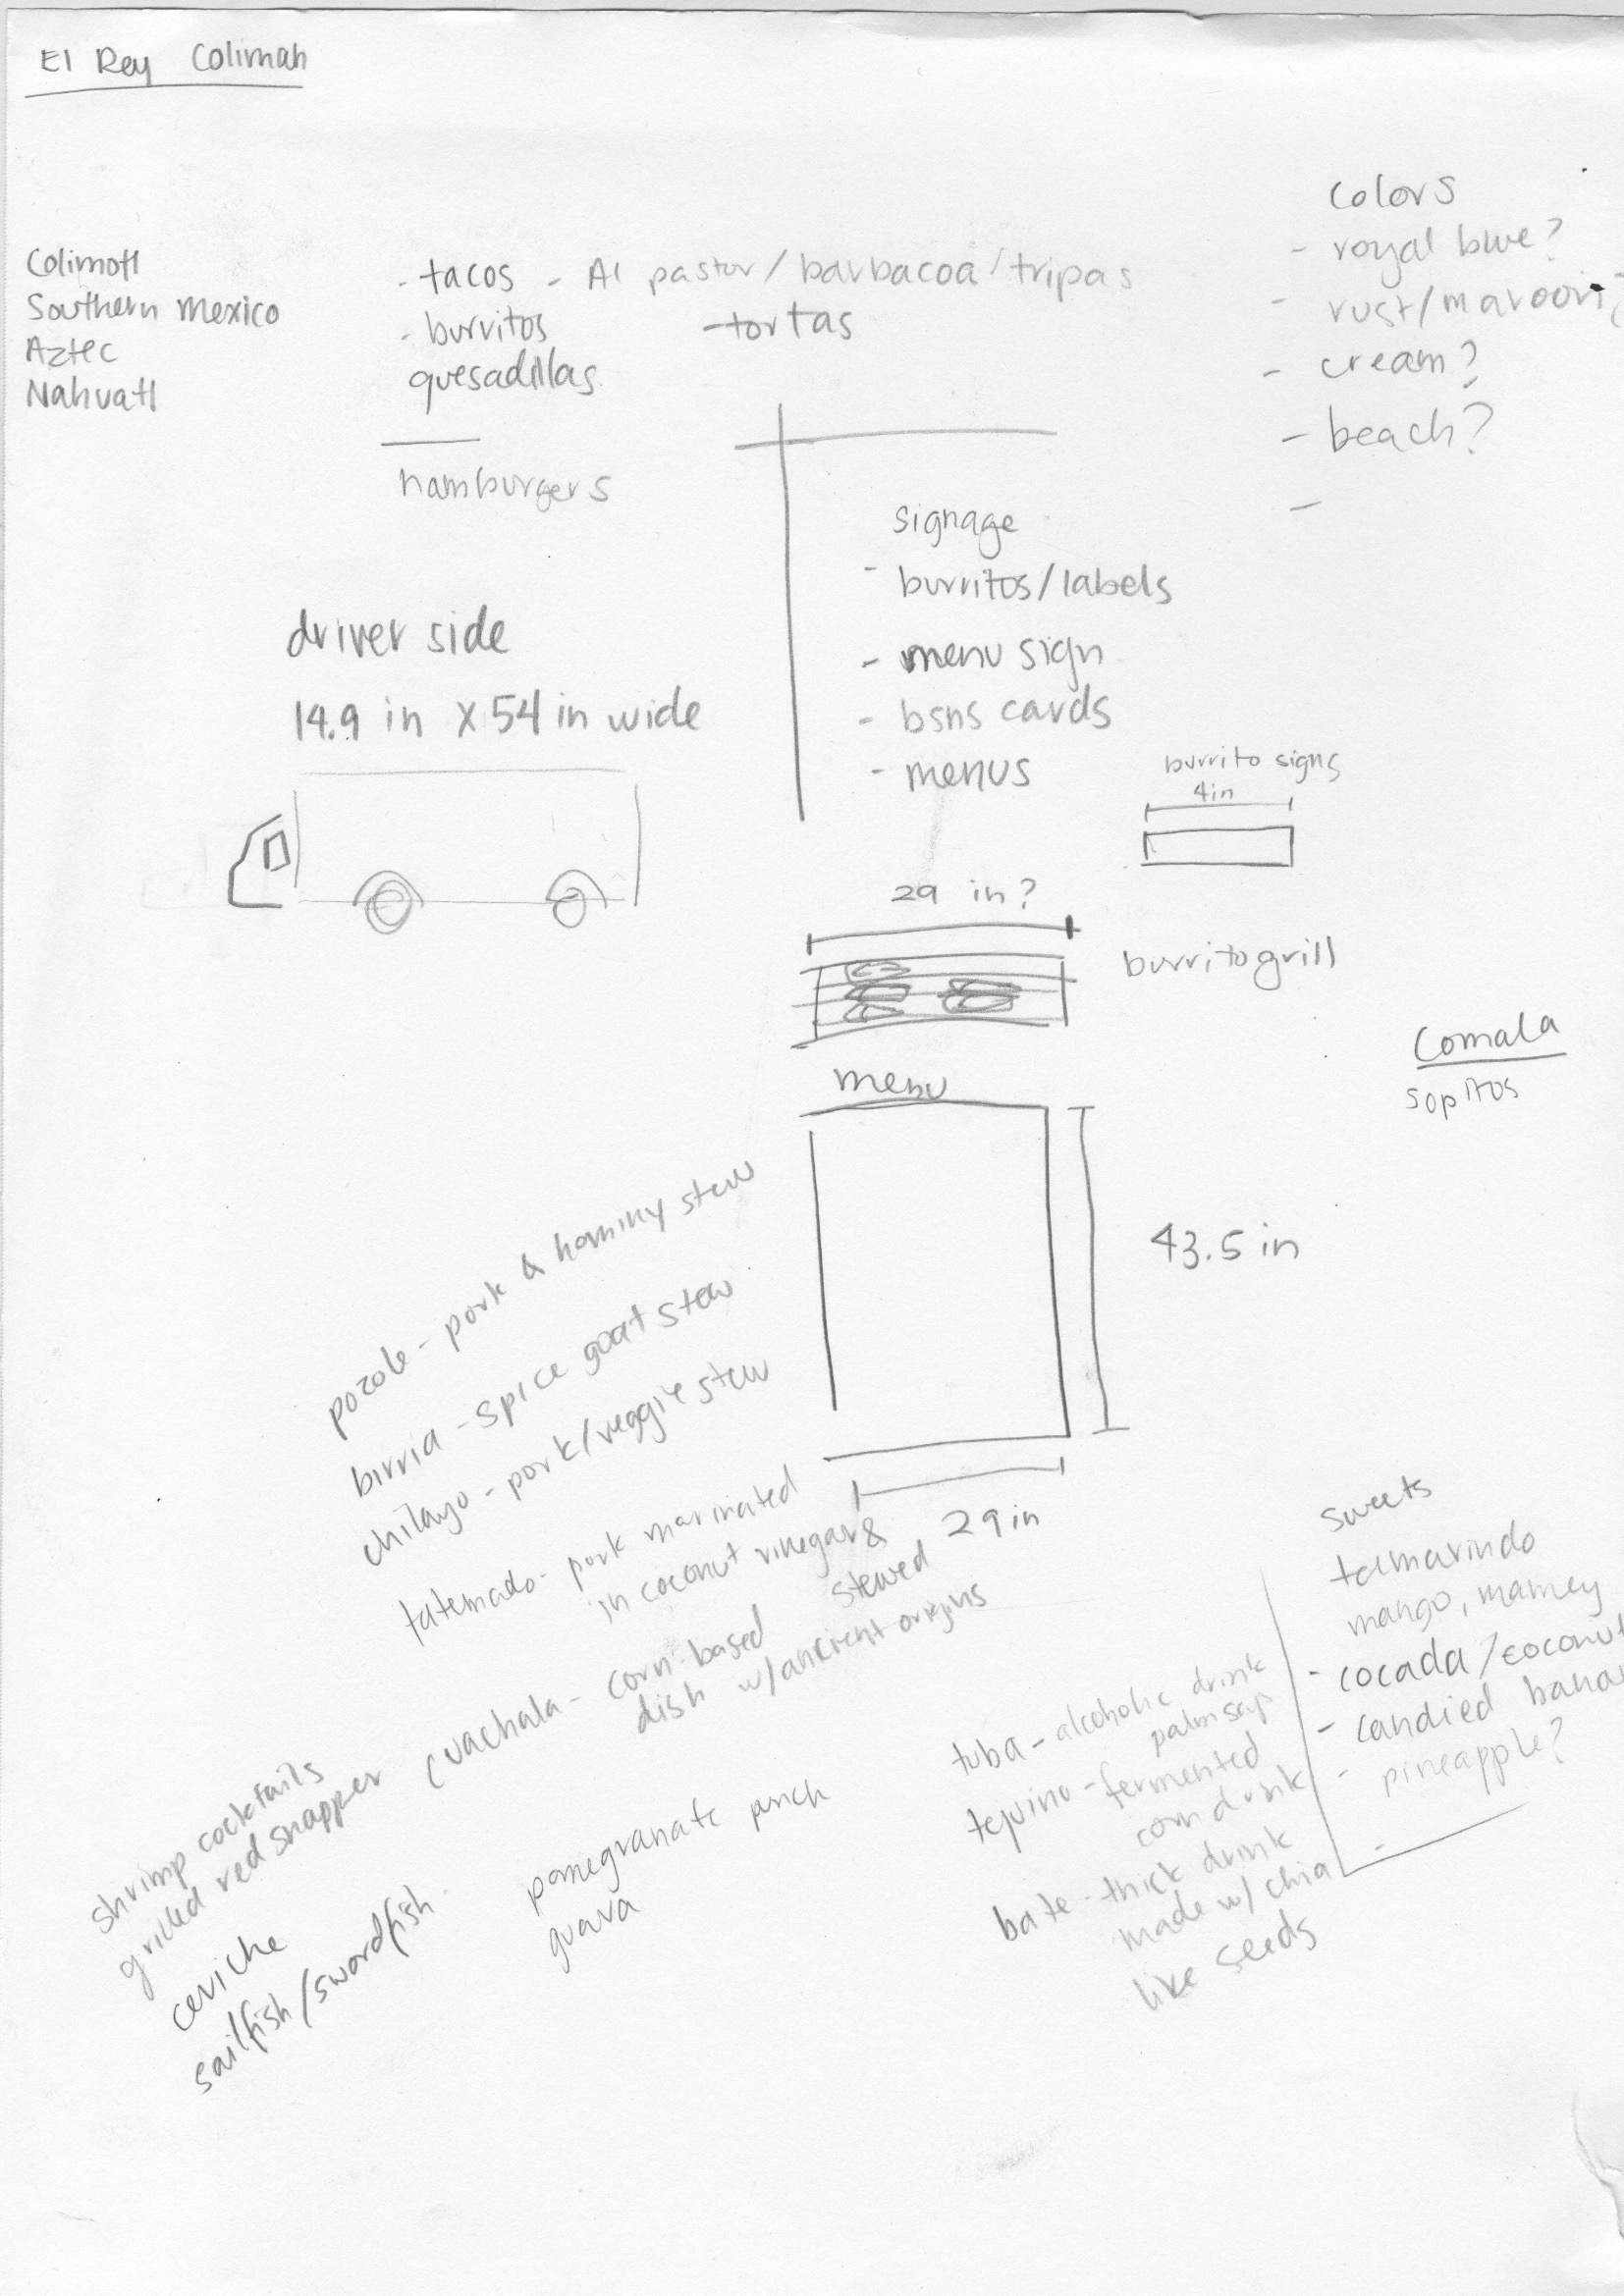 El Rey Colimah
Colimotl
Southern Mexico
Aztec
Nahuatl
- tacos - Al pastor / barbacoa / tripas
- burritos
- tortas
quesadillas
hamburgers
colors
- royal blue?
- rust/maroon?
- cream?
- beach?
-
signage
- burritos/labels
- menu sign
- bsns cards
- menus
driver side
14.9 in X 54 in wide
burrito signs
4in
29 in?
burrito grill
Comala
sopitos
menu
43.5 in
29 in
pozole - pork & hominy stew
birria - spice goat stew
chilayo - pork/veggie stew
tatemado - pork marinated
in coconut vinegar &
stewed
cuachala - corn-based
dish w/ancient origins
shrimp cocktails
grilled red snapper
ceviche
sailfish/swordfish
pomegranate punch
guava
tuba - alcoholic drink
palm sap
tejuino - fermented
corn drink
bate - thick drink
made w/ chia
like seeds
sweets
tamarindo
mango, mamey
- cocada/coconut
- candied bana
- pineapple?
-